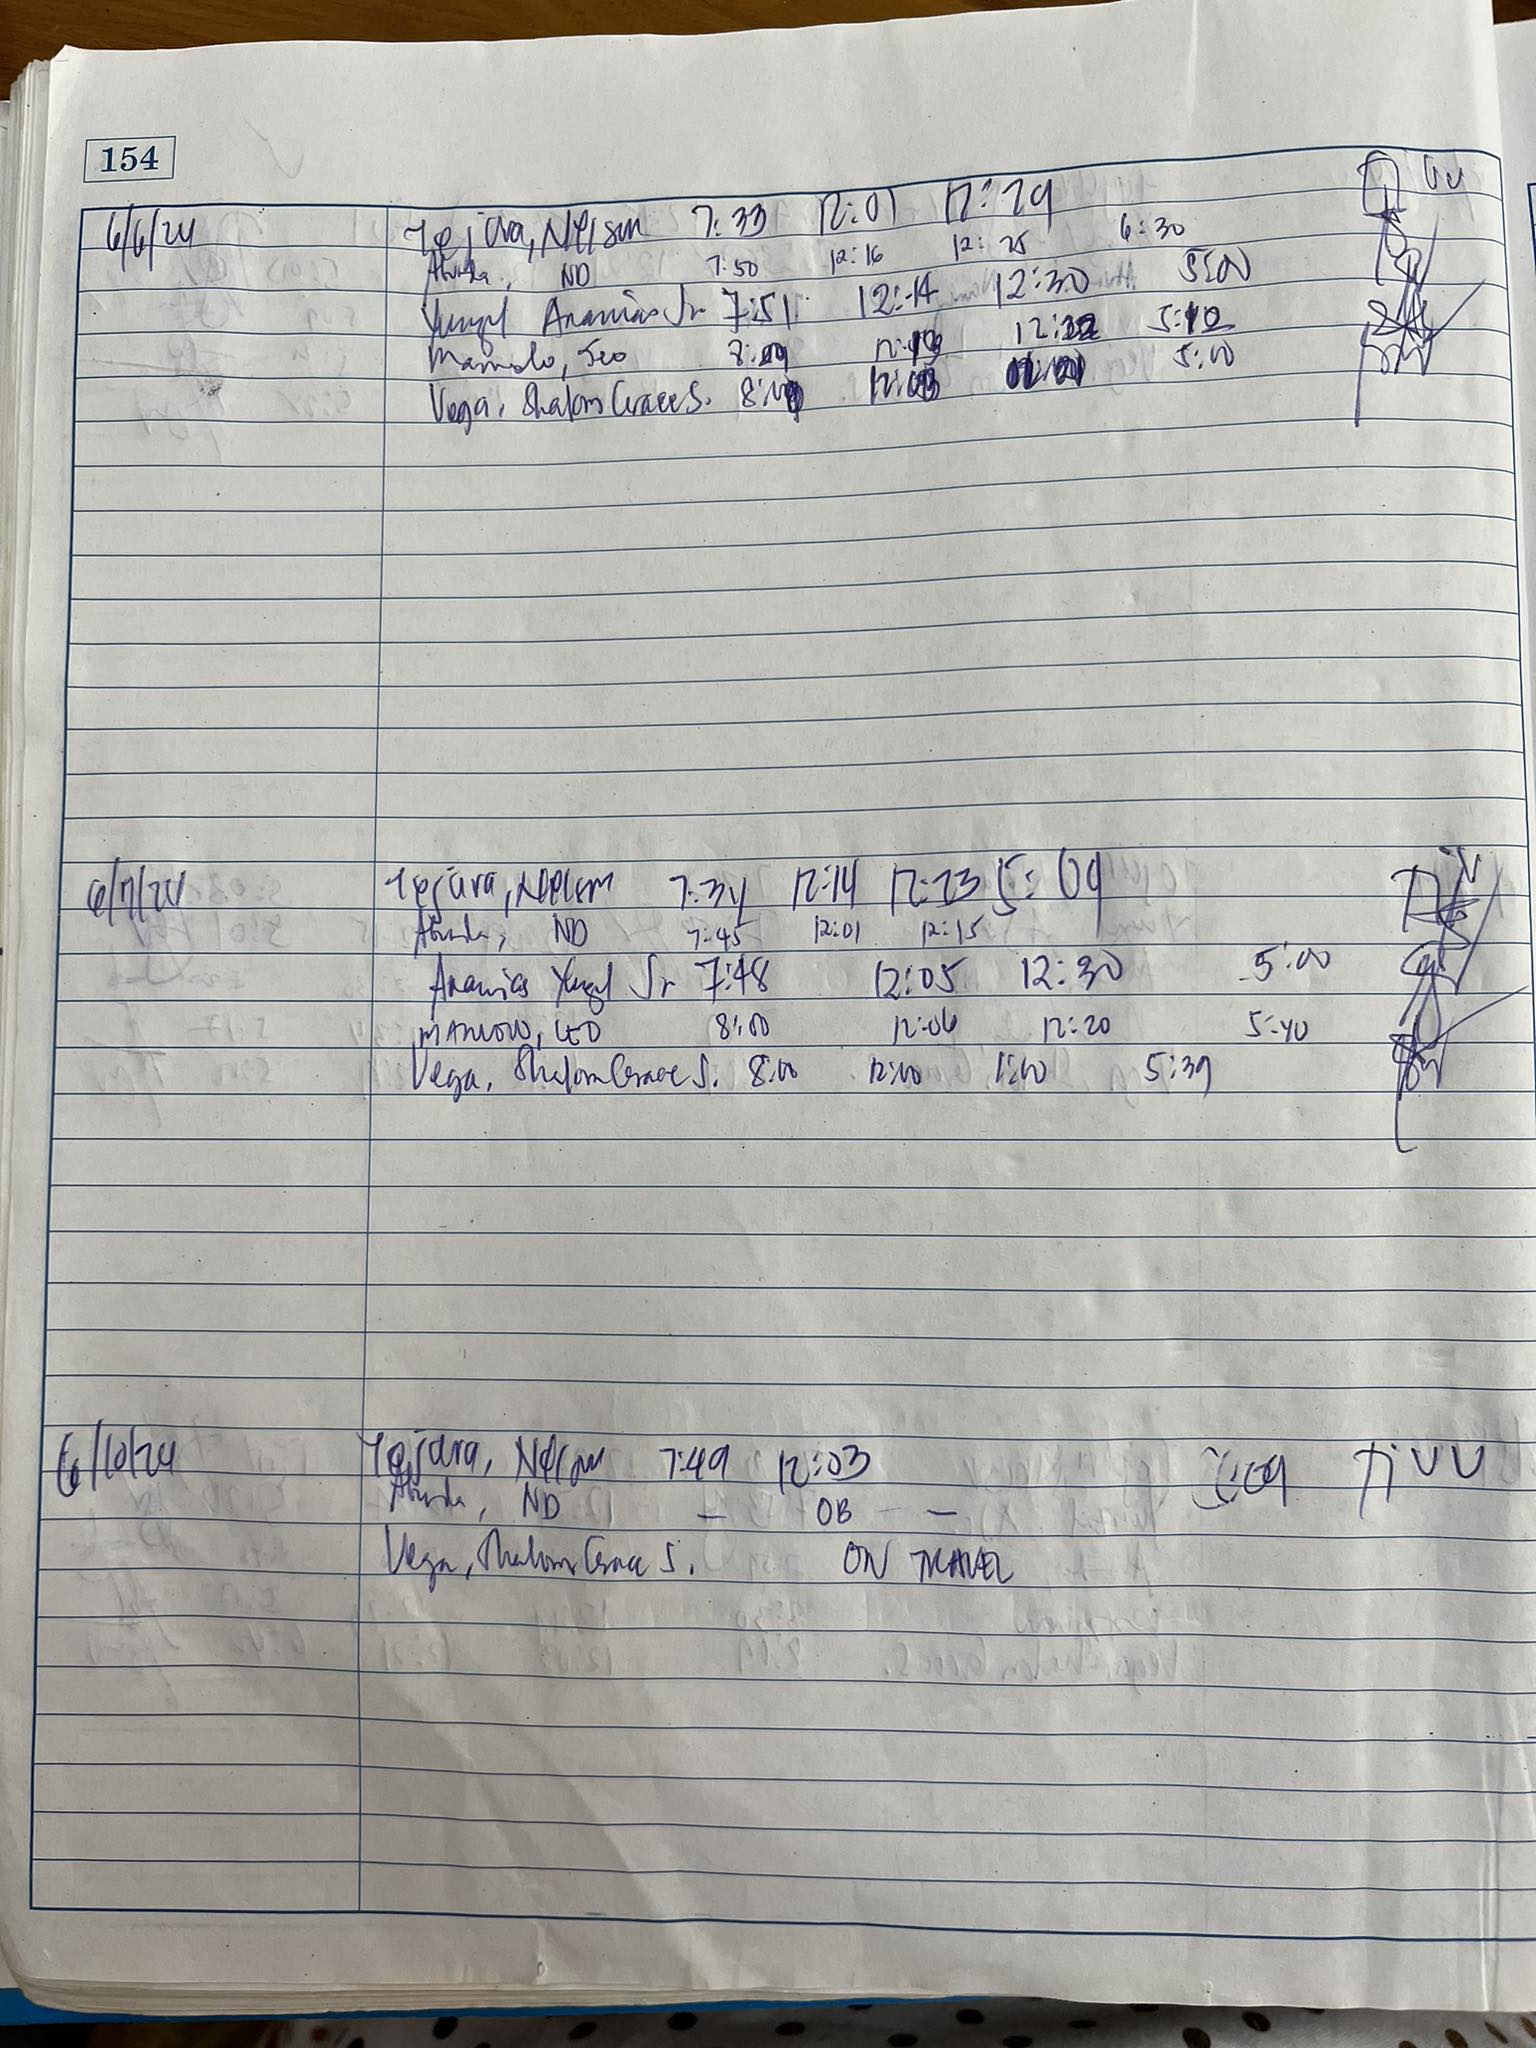 154
6/6/24 Tejara, Nelson 7:33 12:01 12:29
Abunda, ND 7:50 12:16 12:25 6:30
Yungl Ananias Jr 7:51 12:14 12:30 5:00
8:09 12:22 5:12
Vega, Shalom Grace S. 12:03 5:00
6/7/24 Tejara, Nelson 7:34 12:14 12:23 5:09
Abunda, ND 7:45 12:01 12:15
Ananias Yungl Jr 7:48 12:05 12:30 5:00
LEO 8:00 12:06 12:20 5:40
Vega, Shalom Grace S. 8:00 12:00 1:00 5:39
6/10/24 Tejara, Nelson 7:49 12:03 5:09
Abunda, ND — OB — —
Vega, Shalom Grace S. ON TRAVEL